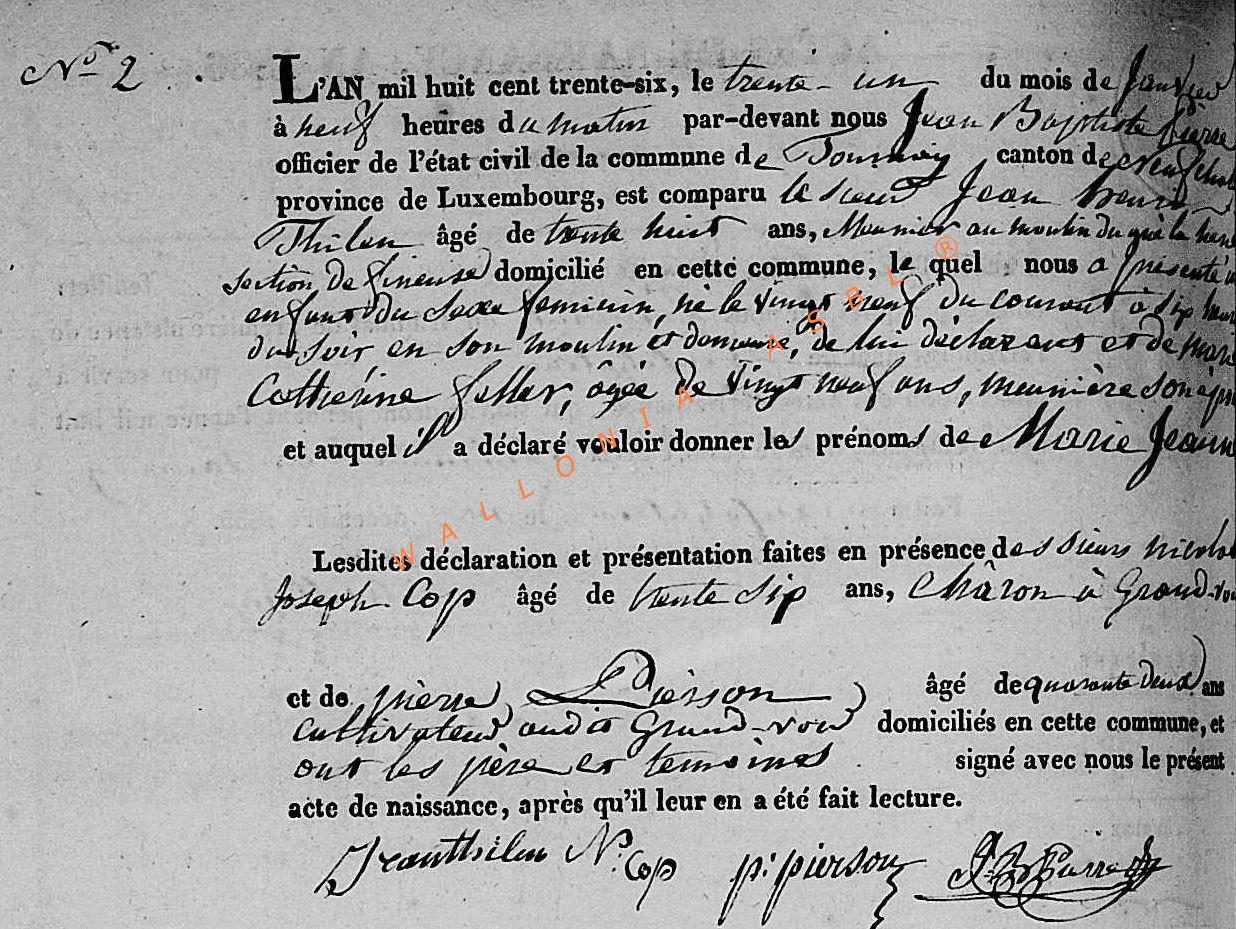 No 2
L'AN mil huit cent trente-six, le trente-un du mois de Janvier
à neuf heures du matin par-devant nous Jean Baptiste
officier de l'état civil de la commune de Tournay, canton de
province de Luxembourg, est comparu le sieur Jean henri
Thilen âgé de trente huit ans, Meunier au moulin du
section de domicilié en cette commune, lequel nous a présenté
enfant du sexe feminin, né le vingt neuf du courant à sip
du soir, en son moulin et demeure, de lui déclarant et de
Catherine feller, âgée de vingt neuf ans, meunière son
et auquel il a déclaré vouloir donner les prénoms de Marie Jeanne
Lesdites déclaration et présentation faites en présence des sieurs nicolas
Joseph Cop âgé de trente sip ans, Châron à Grand-
et de pierre Pierson âgé de quarante deux ans
cultivateur audit Grand-voir domiciliés en cette commune, et
ont les père et temoins signé avec nous le présent
acte de naissance, après qu'il leur en a été fait lecture.
Jean thilen N. Cop p. pierson
WALLONIA ASBL ®